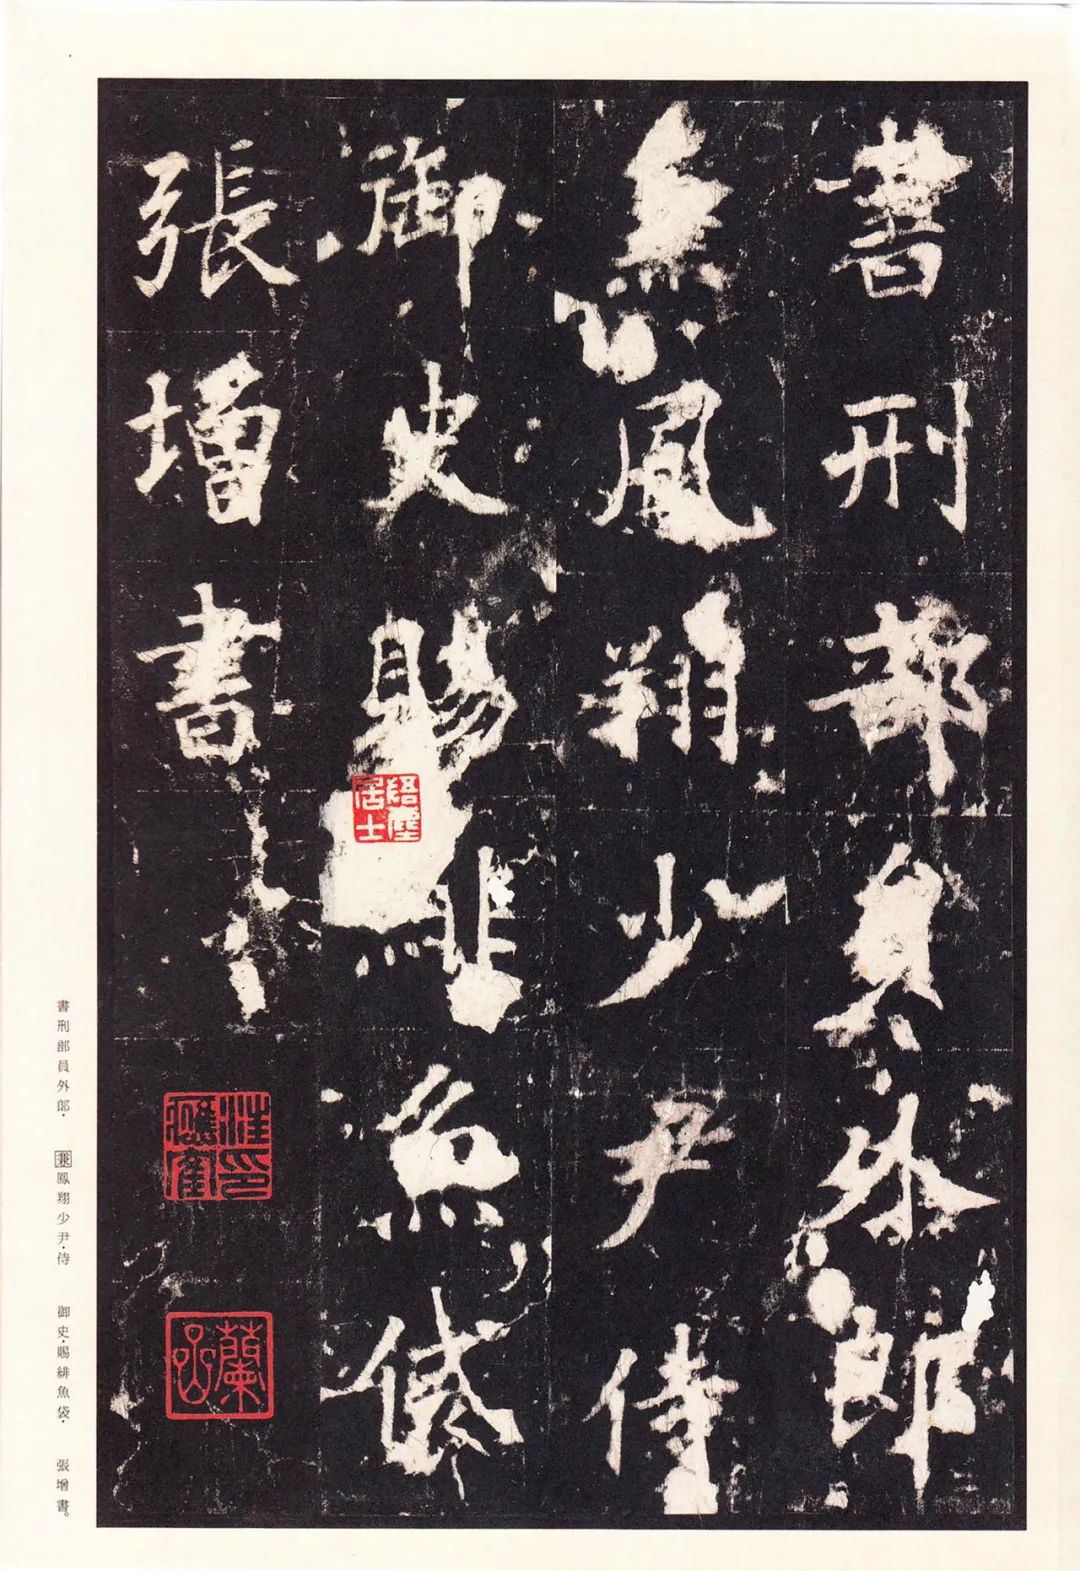 書刑部員外郎
兼鳳翔少尹侍
御史賜緋魚袋
張增書
書刑部員外郎· 兼鳳翔少尹·侍 御史·賜緋魚袋· 張增書。